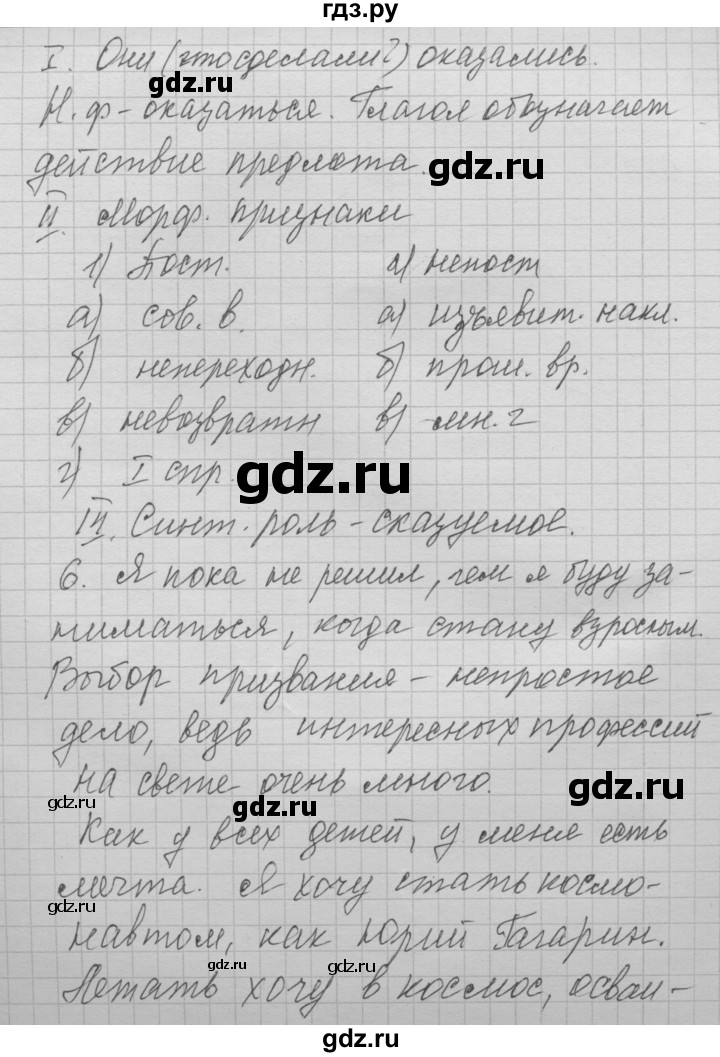 гдз.ру
I. Они (что сделали?) оказались.
Н. ф - оказаться. Глагол обозначает
действие предмета.
II. Морф. признаки
1) Пост. 2) непост
а) сов. в. а) изъявит. накл.
б) непереходн. б) прош. вр.
в) невозвратн в) мн. ч
г) I спр.
III. Синт. роль - сказуемое.
6. Я пока не решил, чем я буду за-
ниматься, когда стану взрослым.
Выбор призвания - непростое
дело, ведь интересных профессий
на свете очень много.
Как у всех детей, у меня есть
мечта. Я хочу стать космо-
навтом, как Юрий Гагарин.
Летать хочу в космос, осваи-
gdz.ru
gdz.ru
gdz.ru
gdz.ru
gdz.ru
gdz.ru
gdz.ru
gdz.ru
gdz.ru
gdz.ru
gdz.ru